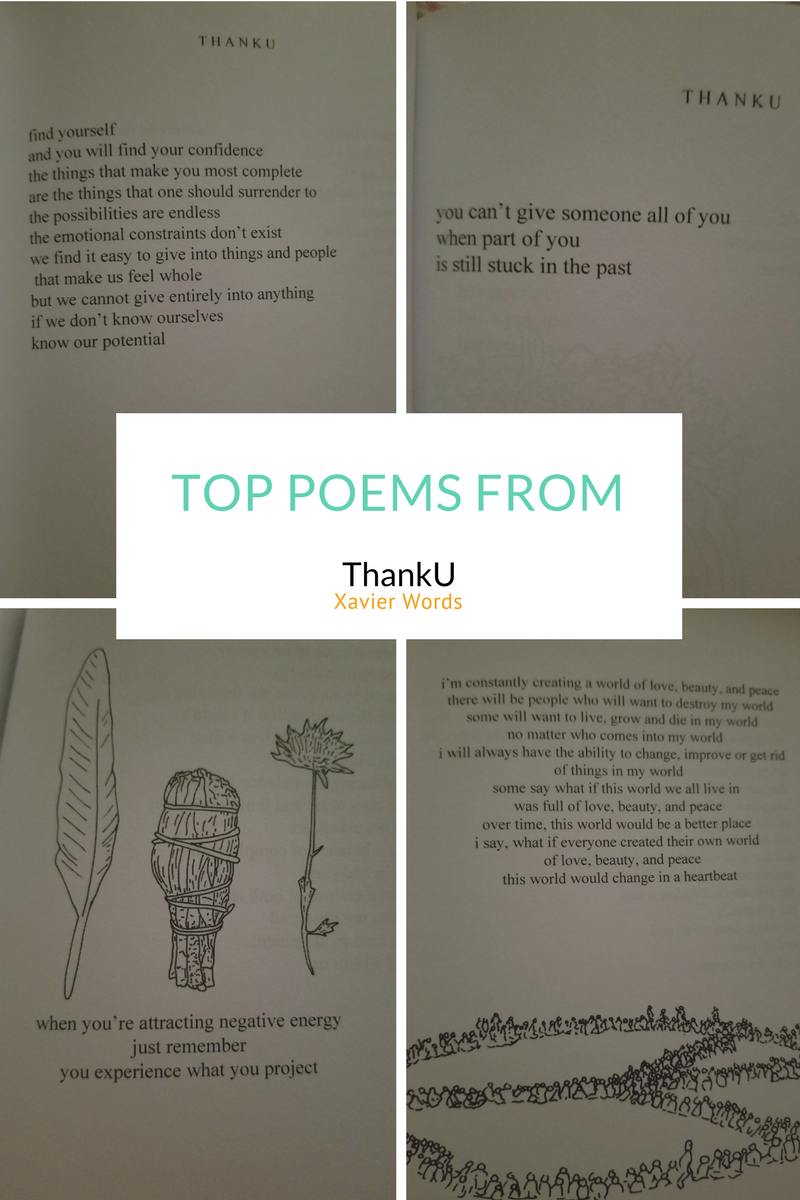 THANKU
find yourself
and you will find your confidence
the things that make you most complete
are the things that one should surrender to
the possibilities are endless
the emotional constraints don't exist
we find it easy to give into things and people
that make us feel whole
but we cannot give entirely into anything
if we don't know ourselves
know our potential
THANKU
you can't give someone all of you
when part of you
is still stuck in the past
TOP POEMS FROM
ThankU
Xavier Words
when you're attracting negative energy
just remember
you experience what you project
i'm constantly creating a world of love, beauty, and peace
there will be people who will want to destroy my world
some will want to live, grow and die in my world
no matter who comes into my world
i will always have the ability to change, improve or get rid
of things in my world
some say what if this world we all live in
was full of love, beauty, and peace
over time, this world would be a better place
i say, what if everyone created their own world
of love, beauty, and peace
this world would change in a heartbeat